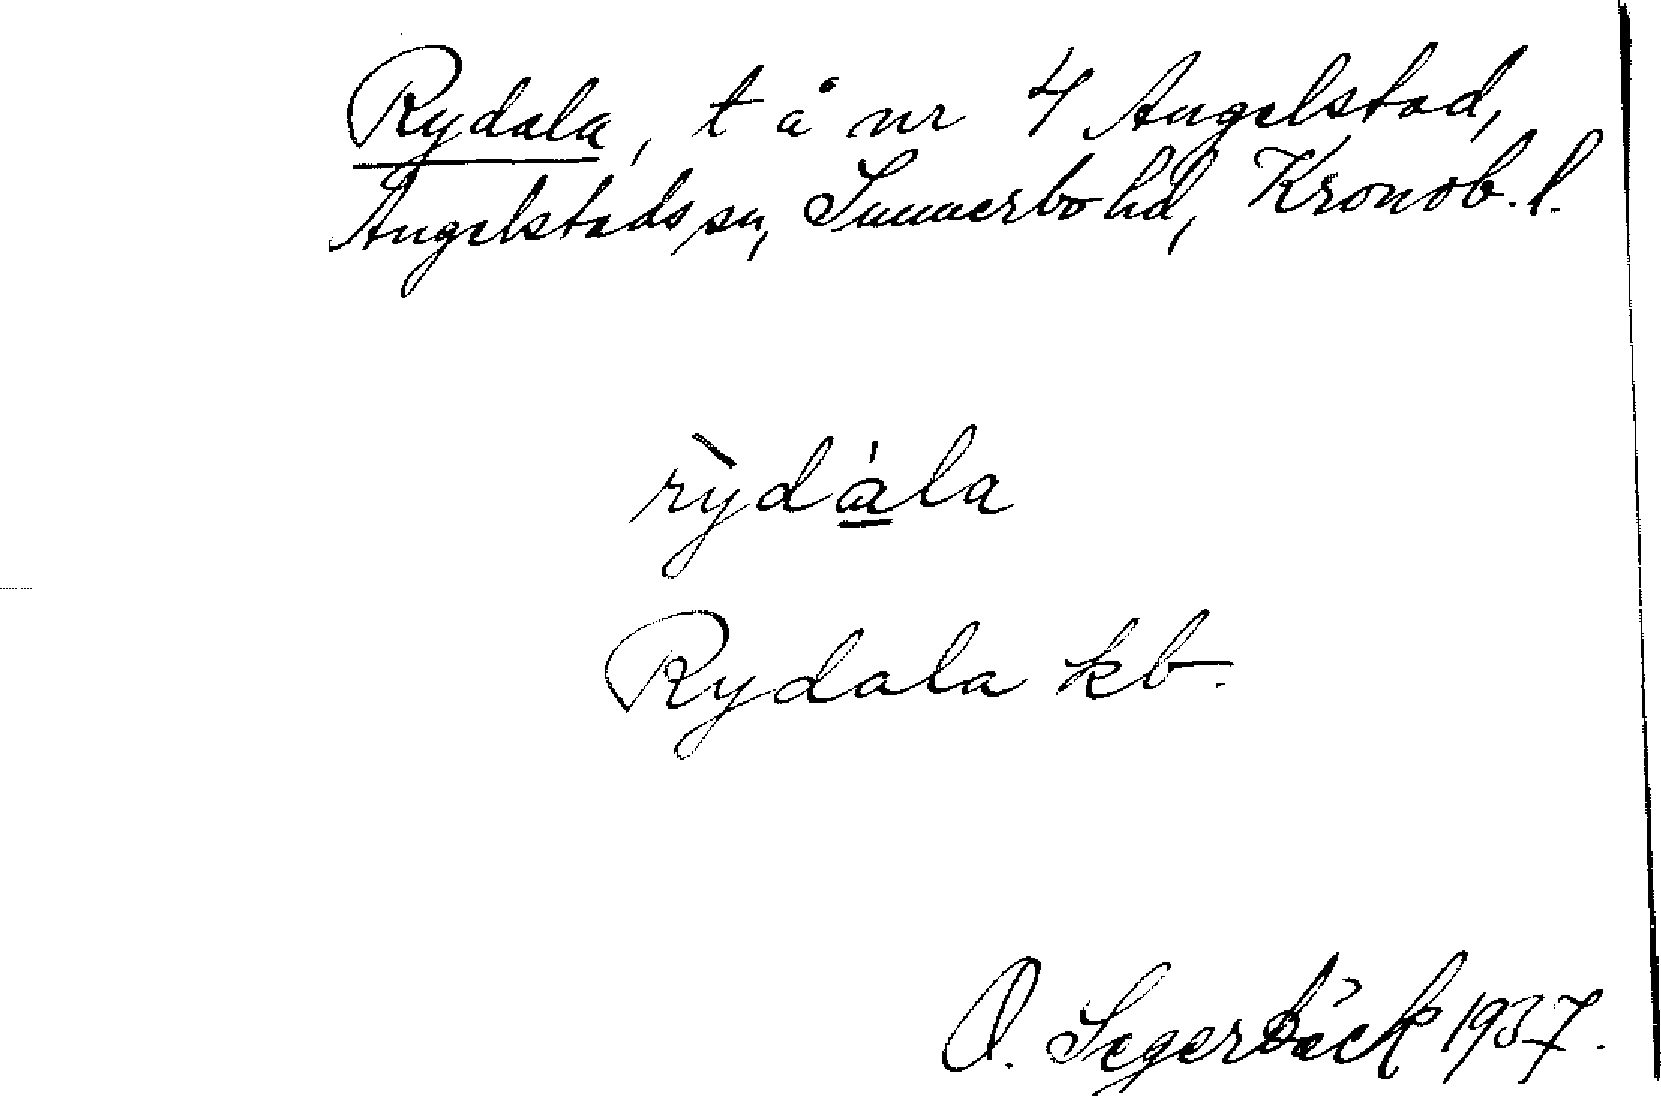 Rydala, t å nr 4 Angelstad,
Angelstads sn, Sunnerbo hd, Kronob. l.
rỳdála
Rydala kb.
O. Segerbäck 1937.